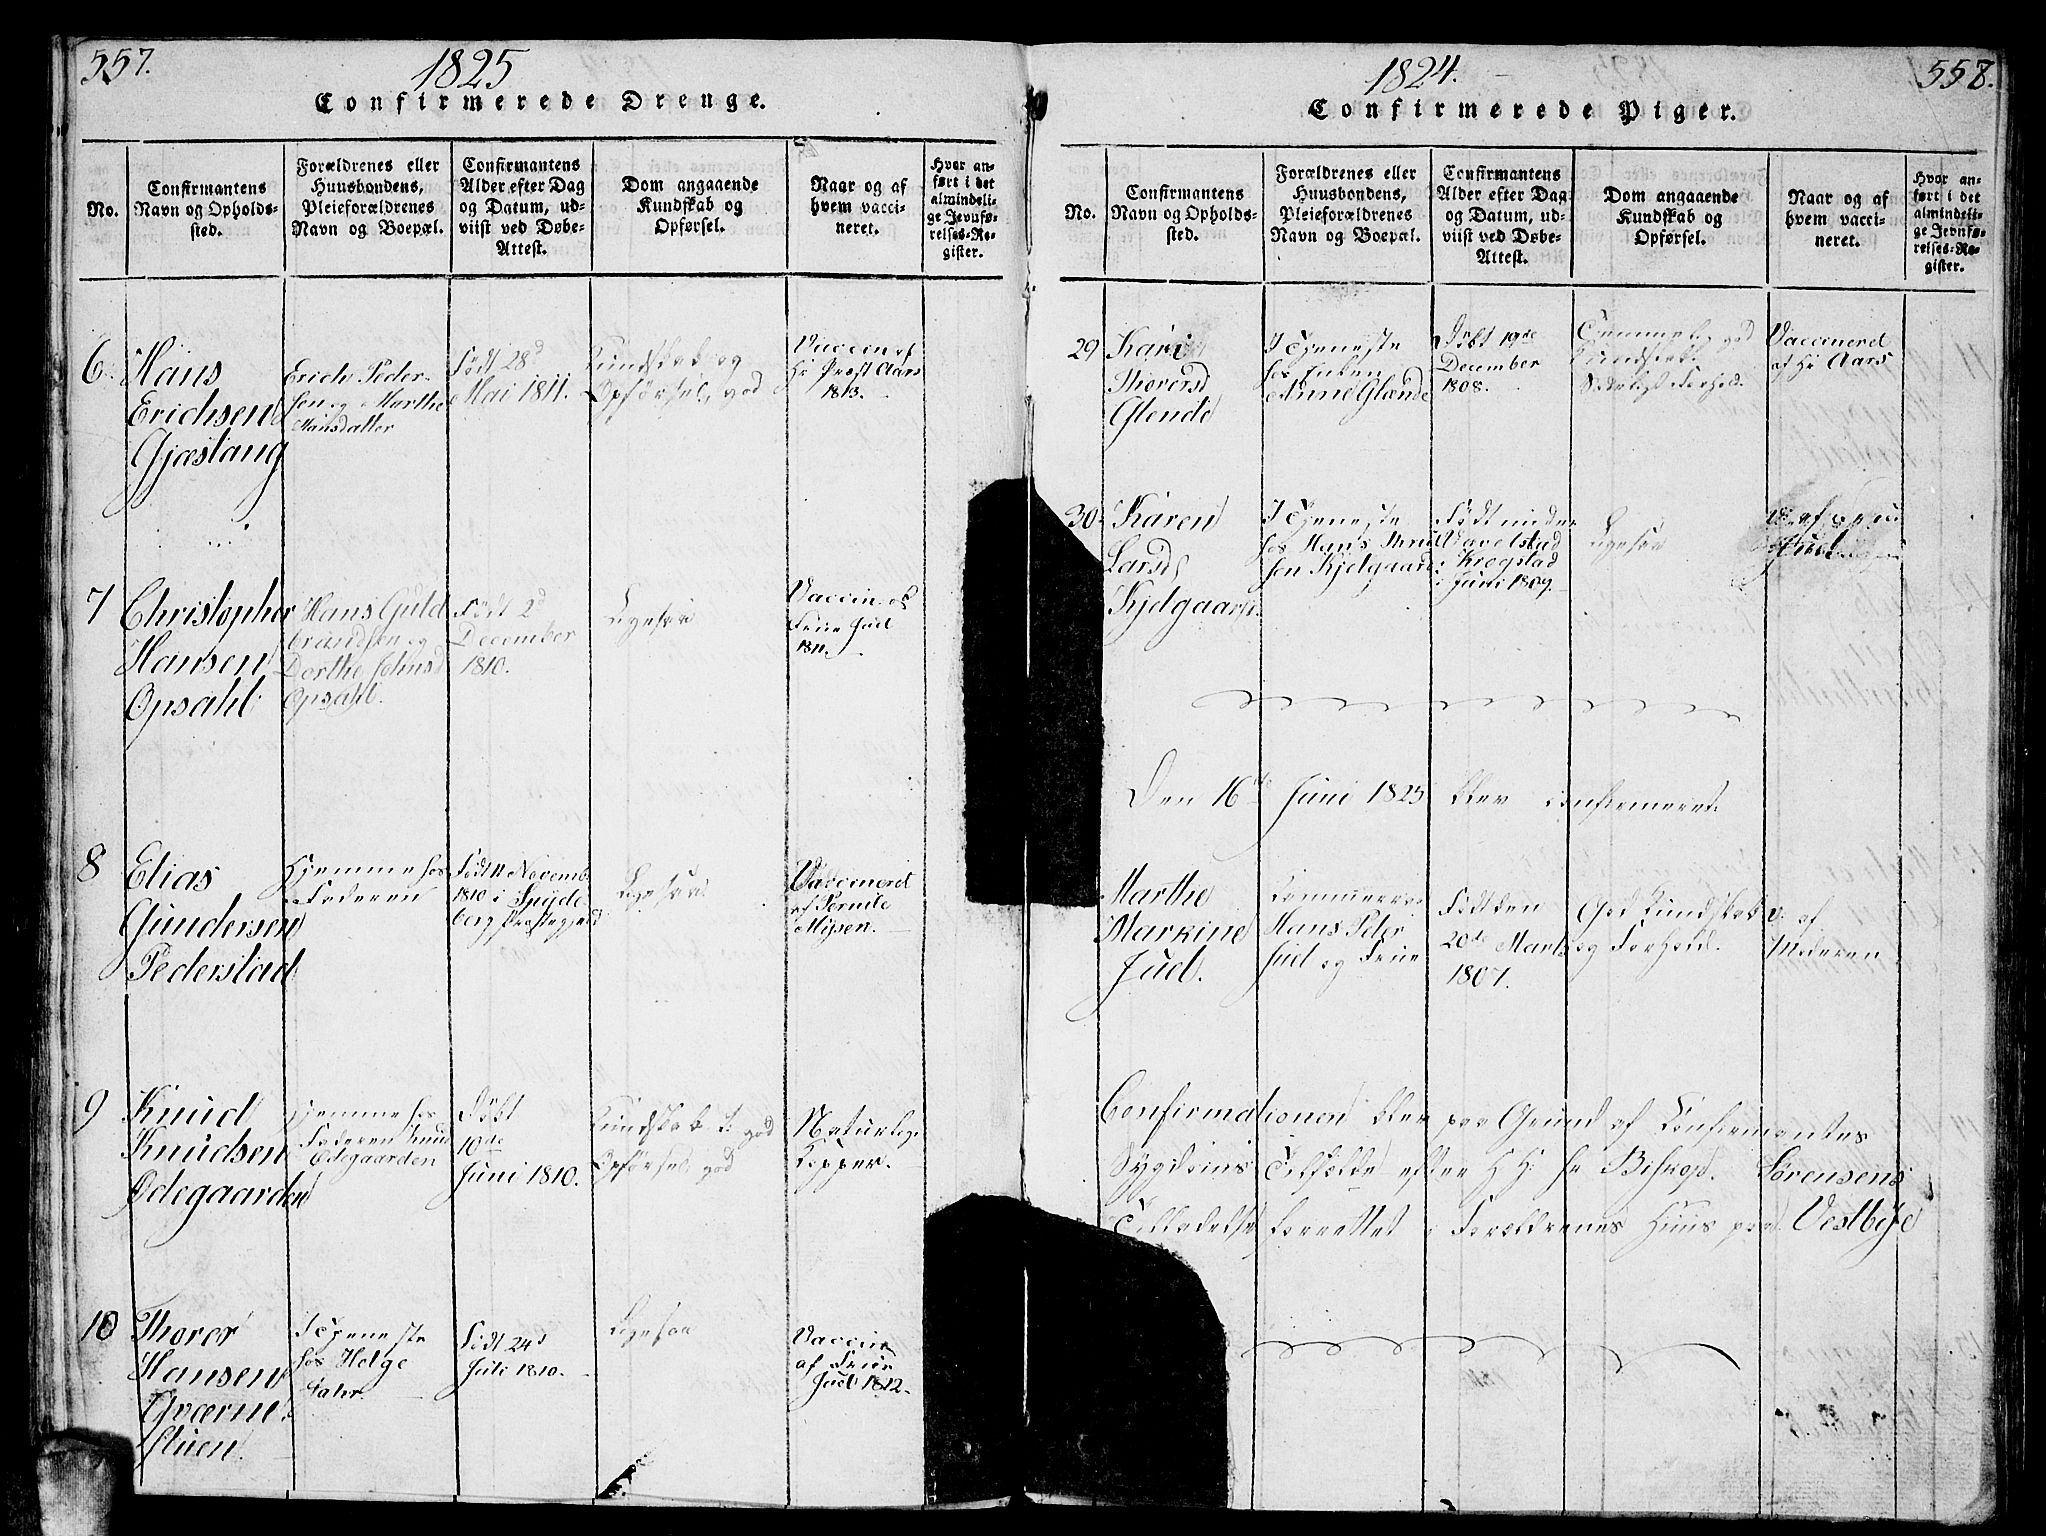 557.
1825
Confirmerede Drenge.
No.
Confirmantens
Navn og Opholds-
sted.
Forældrenes eller
Huusbondens,
Pleieforældrenes
Navn og Boepæl.
Confirmantens
Alder efter Dag
og Datum, ud-
viist ved Døbe-
Attest.
Dom angaaende
Kundskab og
Opførsel.
Naar og af
hvem vacci-
neret.
Hvor an-
ført i det
almindeli-
ge Jevnfø-
relses-Re-
gister.
6.
Hans
Erichsen
Gjæstang
Erich Peder-
sen og Marthe
Hansdatter
Født 28d
Mai 1811.
Kundskab og
Opførsel, god
Vaccin af
Hr Prost Aars
1813.
7
Christopher
Hansen
Opsahl
Hans Guld
brandsen og
Dorthe Johnsd
Opsahl.
Født 2d
December
1810.
Ligesaa
Vaccin. af
Frue Juel
1811.
8
Elias
Gundersen
Pederstad
Hjemme hos
Faderen
Født 11 Novemb.
1810 i Spyde
berg Præstegjeld
Ligesaa
Vaccineret
af Pernile
Mysen.
9
Knud
Knudsen
Ødegaarden
Hjemme hos
Faderen Knud
Ødegaarden
Døbt
10de
Juni 1810.
Kundskab t. god
Opførsel, god
Naturlige
Kopper.
10
Thorer
Hansen
Qværne-
stuen.
I Tjeneste
hos Helge
Født 24d
Juli 1810.
Ligesaa
Vaccin
af Frue
Juel 1812.
558.
1824.
Confirmerede Piger.
No.
Confirmantens
Navn og Opholds-
sted.
Forældrenes eller
Huusbondens,
Pleieforældrenes
Navn og Boepæl.
Confirmantens
Alder efter Dag
og Datum, ud-
viist ved Døbe-
Attest.
Dom angaaende
Kundskab og
Opførsel.
Naar og af
hvem vacci-
neret.
Hvor an-
ført i det
almindeli-
ge Jevnfø-
relses-Re-
gister.
29
Kari
Thorersd
Glende
I Tjeneste
hos Enken
Anne Glænde
Døbt 19de
December
1808.
Temmelig god
Kundskab.
Sædeligt Forhold.
Vaccinered
af Hr Aars
30
Karen
Larsd
Kjelgaard
I Tjeneste
hos Hans
sen Kjelgaard
Født under
Kragstad
i Juni 1809.
Ligesaa
V. af
Juel
Den 16de Juni 1825 blev confirmeret:
Marthe
Markine
Juel.
Hans Peter
Juel og Frue
Født den
20de Marts
1807.
God Kundskab
og Forhold.
V. af
Moderen
Confirmationen blev paa Grund af Confirmantes
Sygdoms Tilfælde efter HH: Hr Biskop Sørensens
Tilladelse forrettet i Forældrenes Huus paa Vestbye